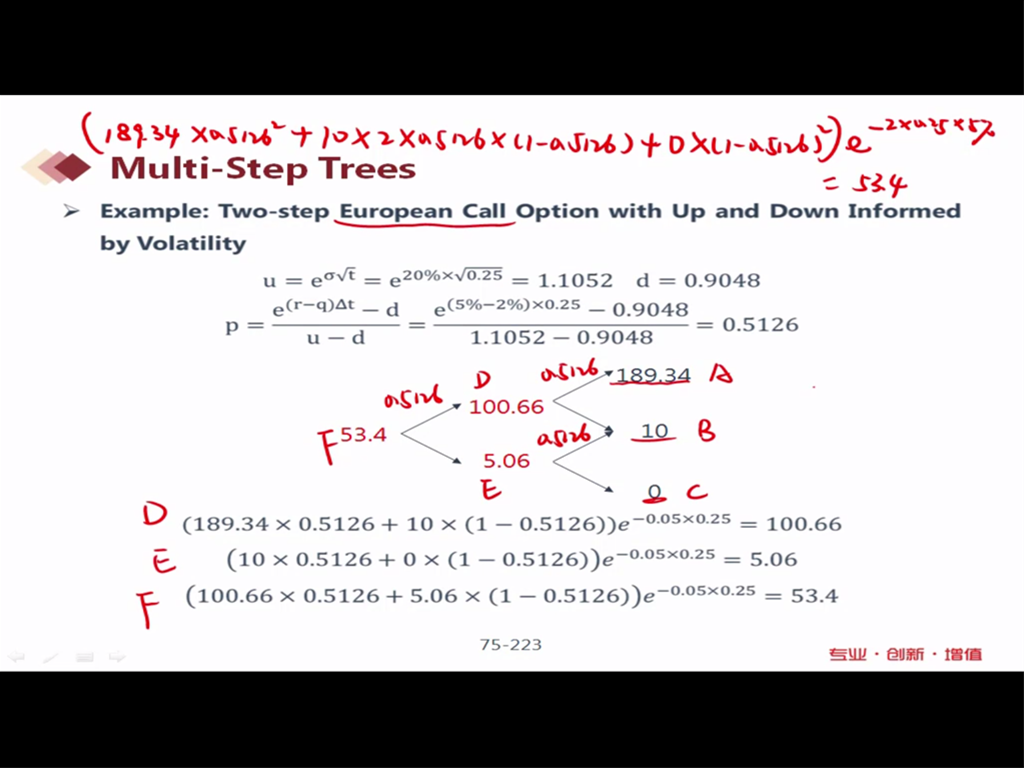 (189.34 × 0.5126² + 10 × 2 × 0.5126 × (1-0.5126) + 0 × (1-0.5126)²) e^{-2×0.25×5%}
= 53.4
Multi-Step Trees
➢ Example: Two-step European Call Option with Up and Down Informed
by Volatility
u = e^{σ√t} = e^{20%×√0.25} = 1.1052 d = 0.9048
p = \frac{e^{(r−q)Δt} − d}{u − d} = \frac{e^{(5%−2%)×0.25} − 0.9048}{1.1052 − 0.9048} = 0.5126
0.5126 189.34 A
D
0.5126 100.66
F 53.4 0.5126 10 B
5.06
E 0 C
D (189.34 × 0.5126 + 10 × (1 − 0.5126))e^{−0.05×0.25} = 100.66
E (10 × 0.5126 + 0 × (1 − 0.5126))e^{−0.05×0.25} = 5.06
F (100.66 × 0.5126 + 5.06 × (1 − 0.5126))e^{−0.05×0.25} = 53.4
75-223
专业·创新·增值